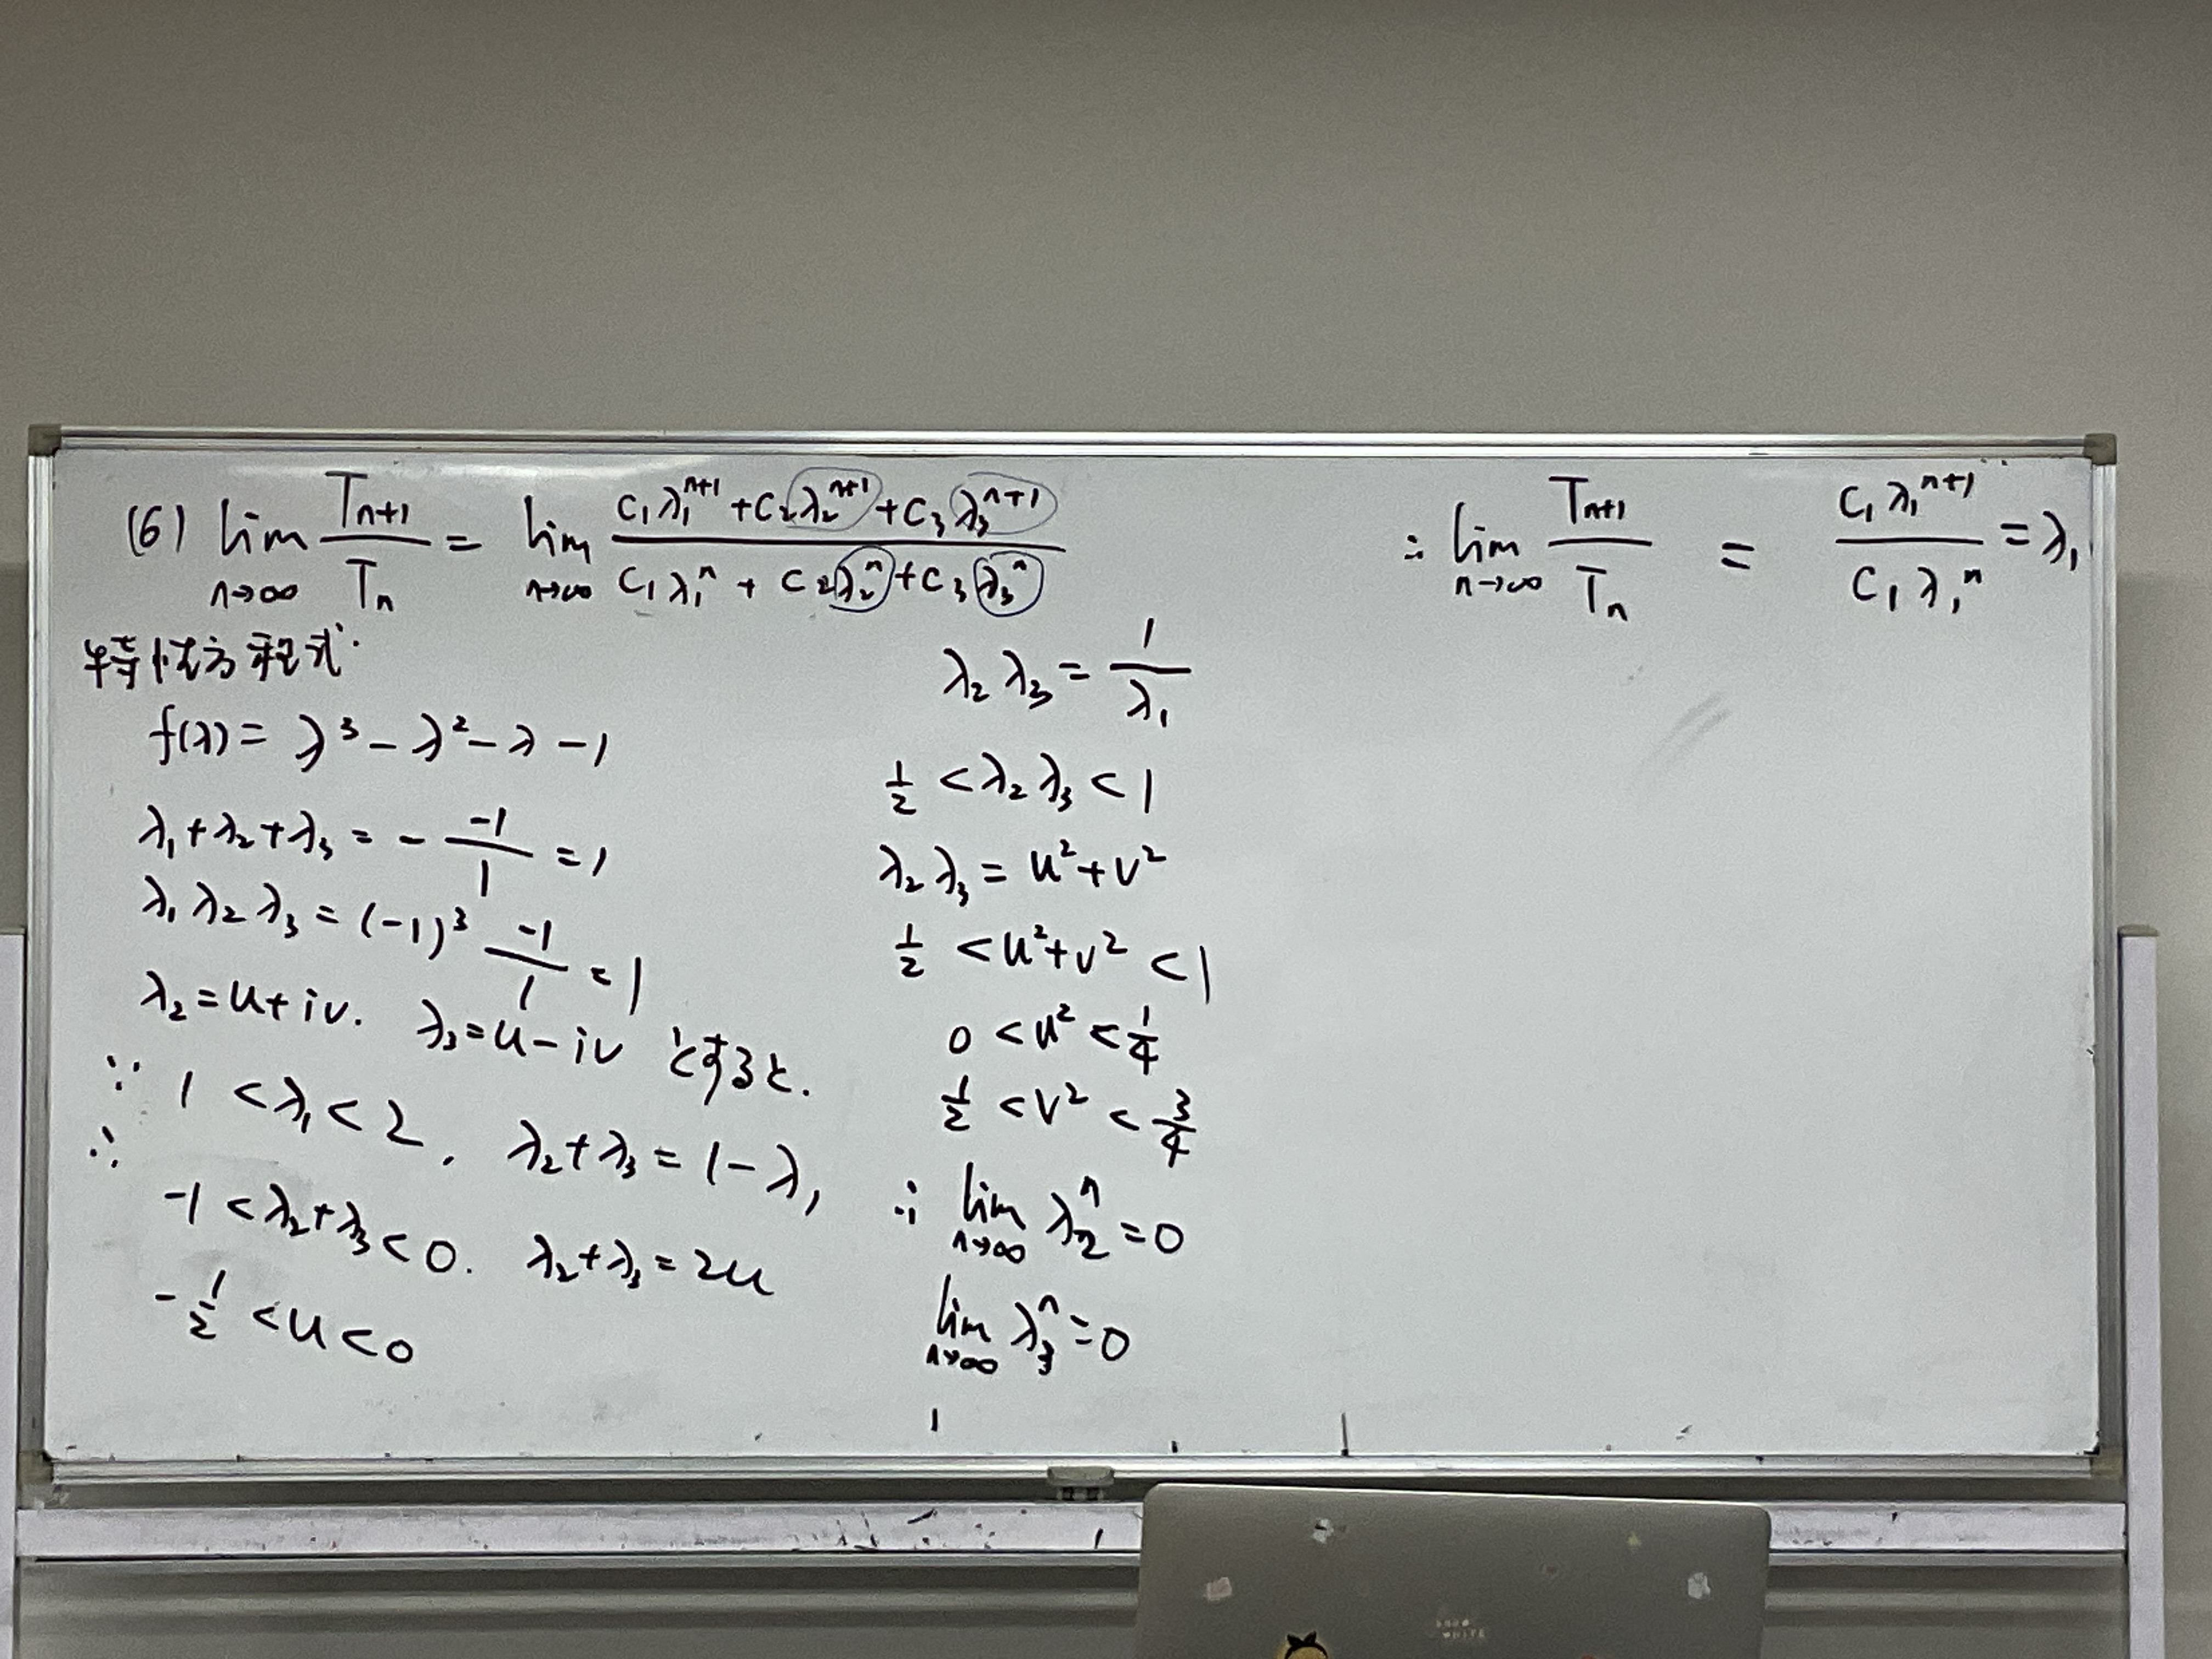 (6) lim n→∞ Tn+1 / Tn = lim n→∞ (C1λ1^n+1 + C2λ2^n+1 + C3λ3^n+1) / (C1λ1^n + C2λ2^n + C3λ3^n)
特性方程式.
f(λ) = λ³ - λ² - λ - 1
λ1 + λ2 + λ3 = - -1/1 = 1
λ1 λ2 λ3 = (-1)³ -1/1 = 1
λ2 = u + iv. λ3 = u - iv とすると.
∵ 1 < λ1 < 2. λ2 + λ3 = 1 - λ1
∴ -1 < λ2 + λ3 < 0. λ2 + λ3 = 2u
-1/2 < u < 0
λ2 λ3 = 1/λ1
1/2 < λ2 λ3 < 1
λ2 λ3 = u² + v²
1/2 < u² + v² < 1
0 < u² < 1/4
1/2 < v² < 3/4
∴ lim n→∞ λ2^n = 0
lim n→∞ λ3^n = 0
∴ lim n→∞ Tn+1 / Tn = C1 λ1^n+1 / C1 λ1^n = λ1